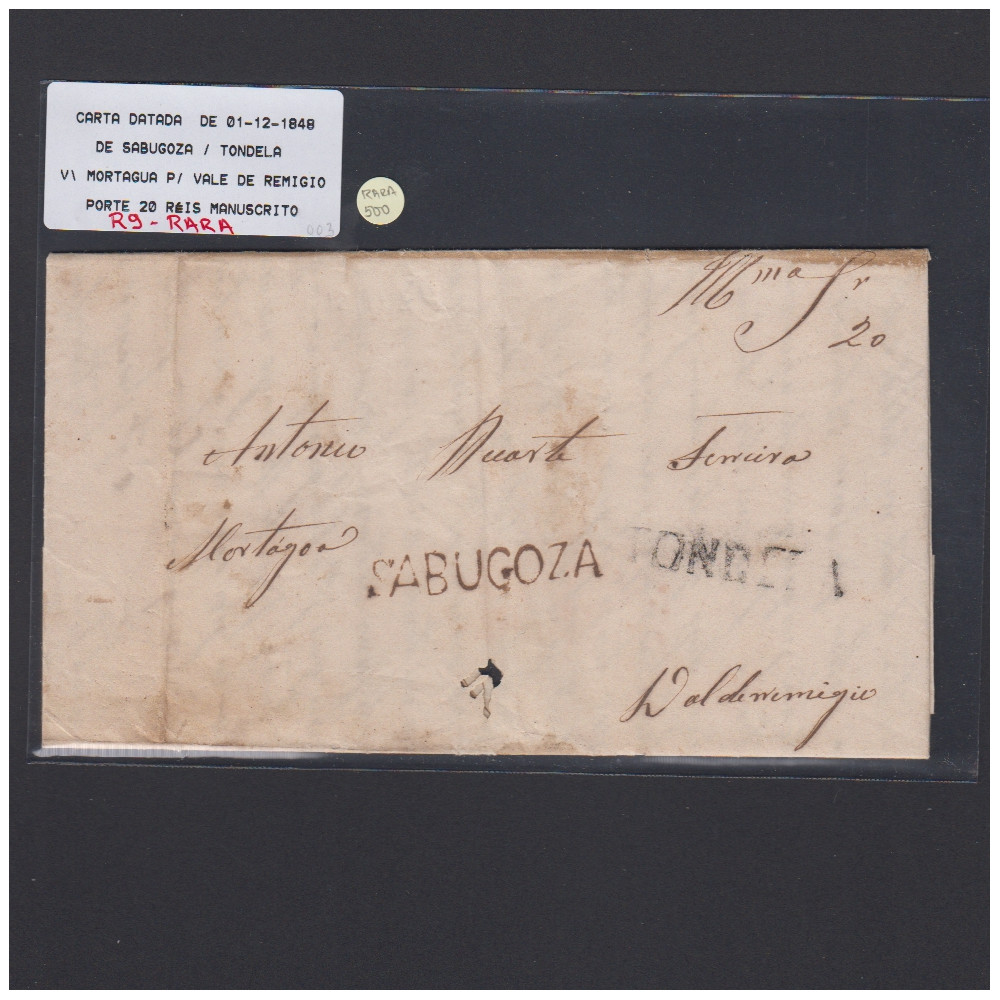 CARTA DATADA DE 01-12-1848
DE SABUGOZA / TONDELA
V\ MORTAGUA P/ VALE DE REMIGIO
PORTE 20 RÉIS MANUSCRITO
R9 - RARA
003
RARA
500
Illmo Sr
20
Antonio Duarte Ferreira
Mortágoa
SABUGOZA
TONDELA
Valderemigio